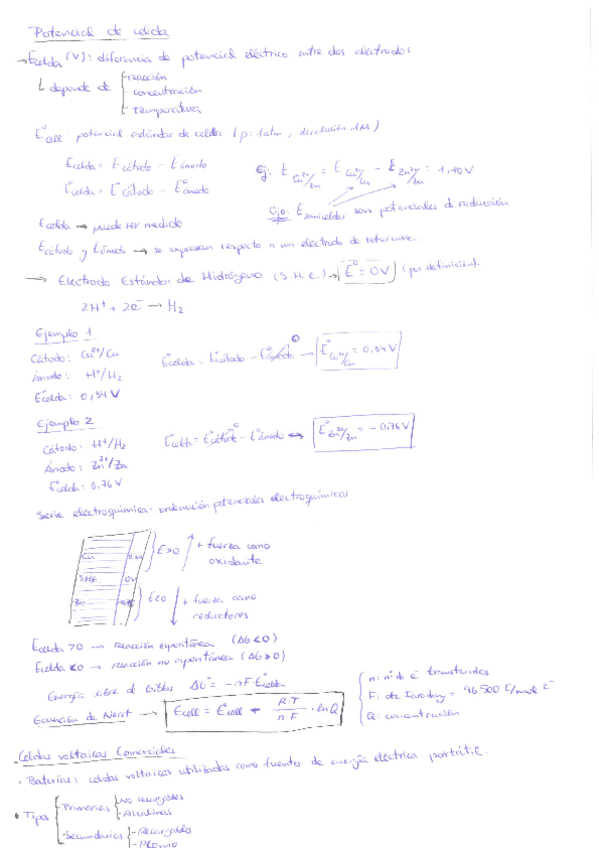 Potencial de celda
→ Ecelda (V): diferencia de potencial eléctrico entre dos electrodos
↳ depende de
- reacción
- concentración
- temperatura
E°cell potencial estándar de celda (p=1atm, disolución 1M)
Ecelda = Ecátodo - Eánodo
E°celda = E°cátodo - E°ánodo
Ej: E Cu²⁺/Zn = E Cu²⁺/Cu - E Zn²⁺/Zn = 1'10 V
Ojo: Esemiceldas son potenciales de reducción
Ecelda → puede ser medido
Ecátodo y Eánodo → se expresan respecto a un electrodo de referencia.
→ Electrodo Estándar de Hidrógeno (S.H.E.) → E° = 0V (por definición).
2H⁺ + 2e⁻ → H₂
Ejemplo 1
Cátodo: Cu²⁺/Cu
Ánodo: H⁺/H₂
E°celda: 0,34 V
E°celda = E°cátodo - E°ánodo → E°Cu²⁺/Cu = 0,34 V
Ejemplo 2
Cátodo: H⁺/H₂
Ánodo: Zn²⁺/Zn
E°celda: 0,76 V
E°celda = E°cátodo - E°ánodo → E°Zn²⁺/Zn = -0,76 V
Serie electroquímica: ordenación potenciales electroquímicos
Cu
E>0
+ fuerza como oxidante
SHE 0V
Zn
E<0
+ fuerza como reductores
Ecelda > 0 → reacción espontánea (ΔG < 0)
Ecelda < 0 → reacción no espontánea (ΔG > 0)
Energía libre de Gibbs ΔG° = -nF·E°celda
Ecuación de Nernst → Ecell = E°cell - R·T/n·F · lnQ
n: nº de e⁻ transferidos
F: cte Faraday = 96500 C/mol e⁻
Q: concentración
Celdas voltaicas Comerciales
· Baterías: celdas voltaicas utilizadas como fuentes de energía eléctrica portátil.
• Tipos
- Primarias
- No recargables
- Alcalinas
- Secundarias
- Recargables
- Plomo